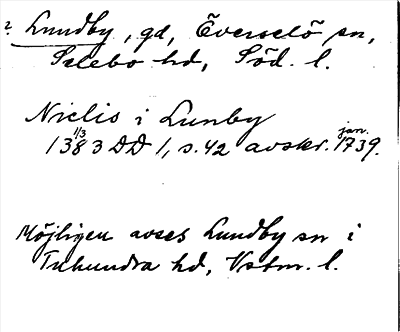 ? Lundby, gd, Överselö sn,
Selebo hd, Söd. l.
Niclis i Lunby
1383 1/3 DD 1, s. 42 avskr. jan. 1739.
Möjligen avses Lundby sn i
Tuhundra hd, Vstm. l.